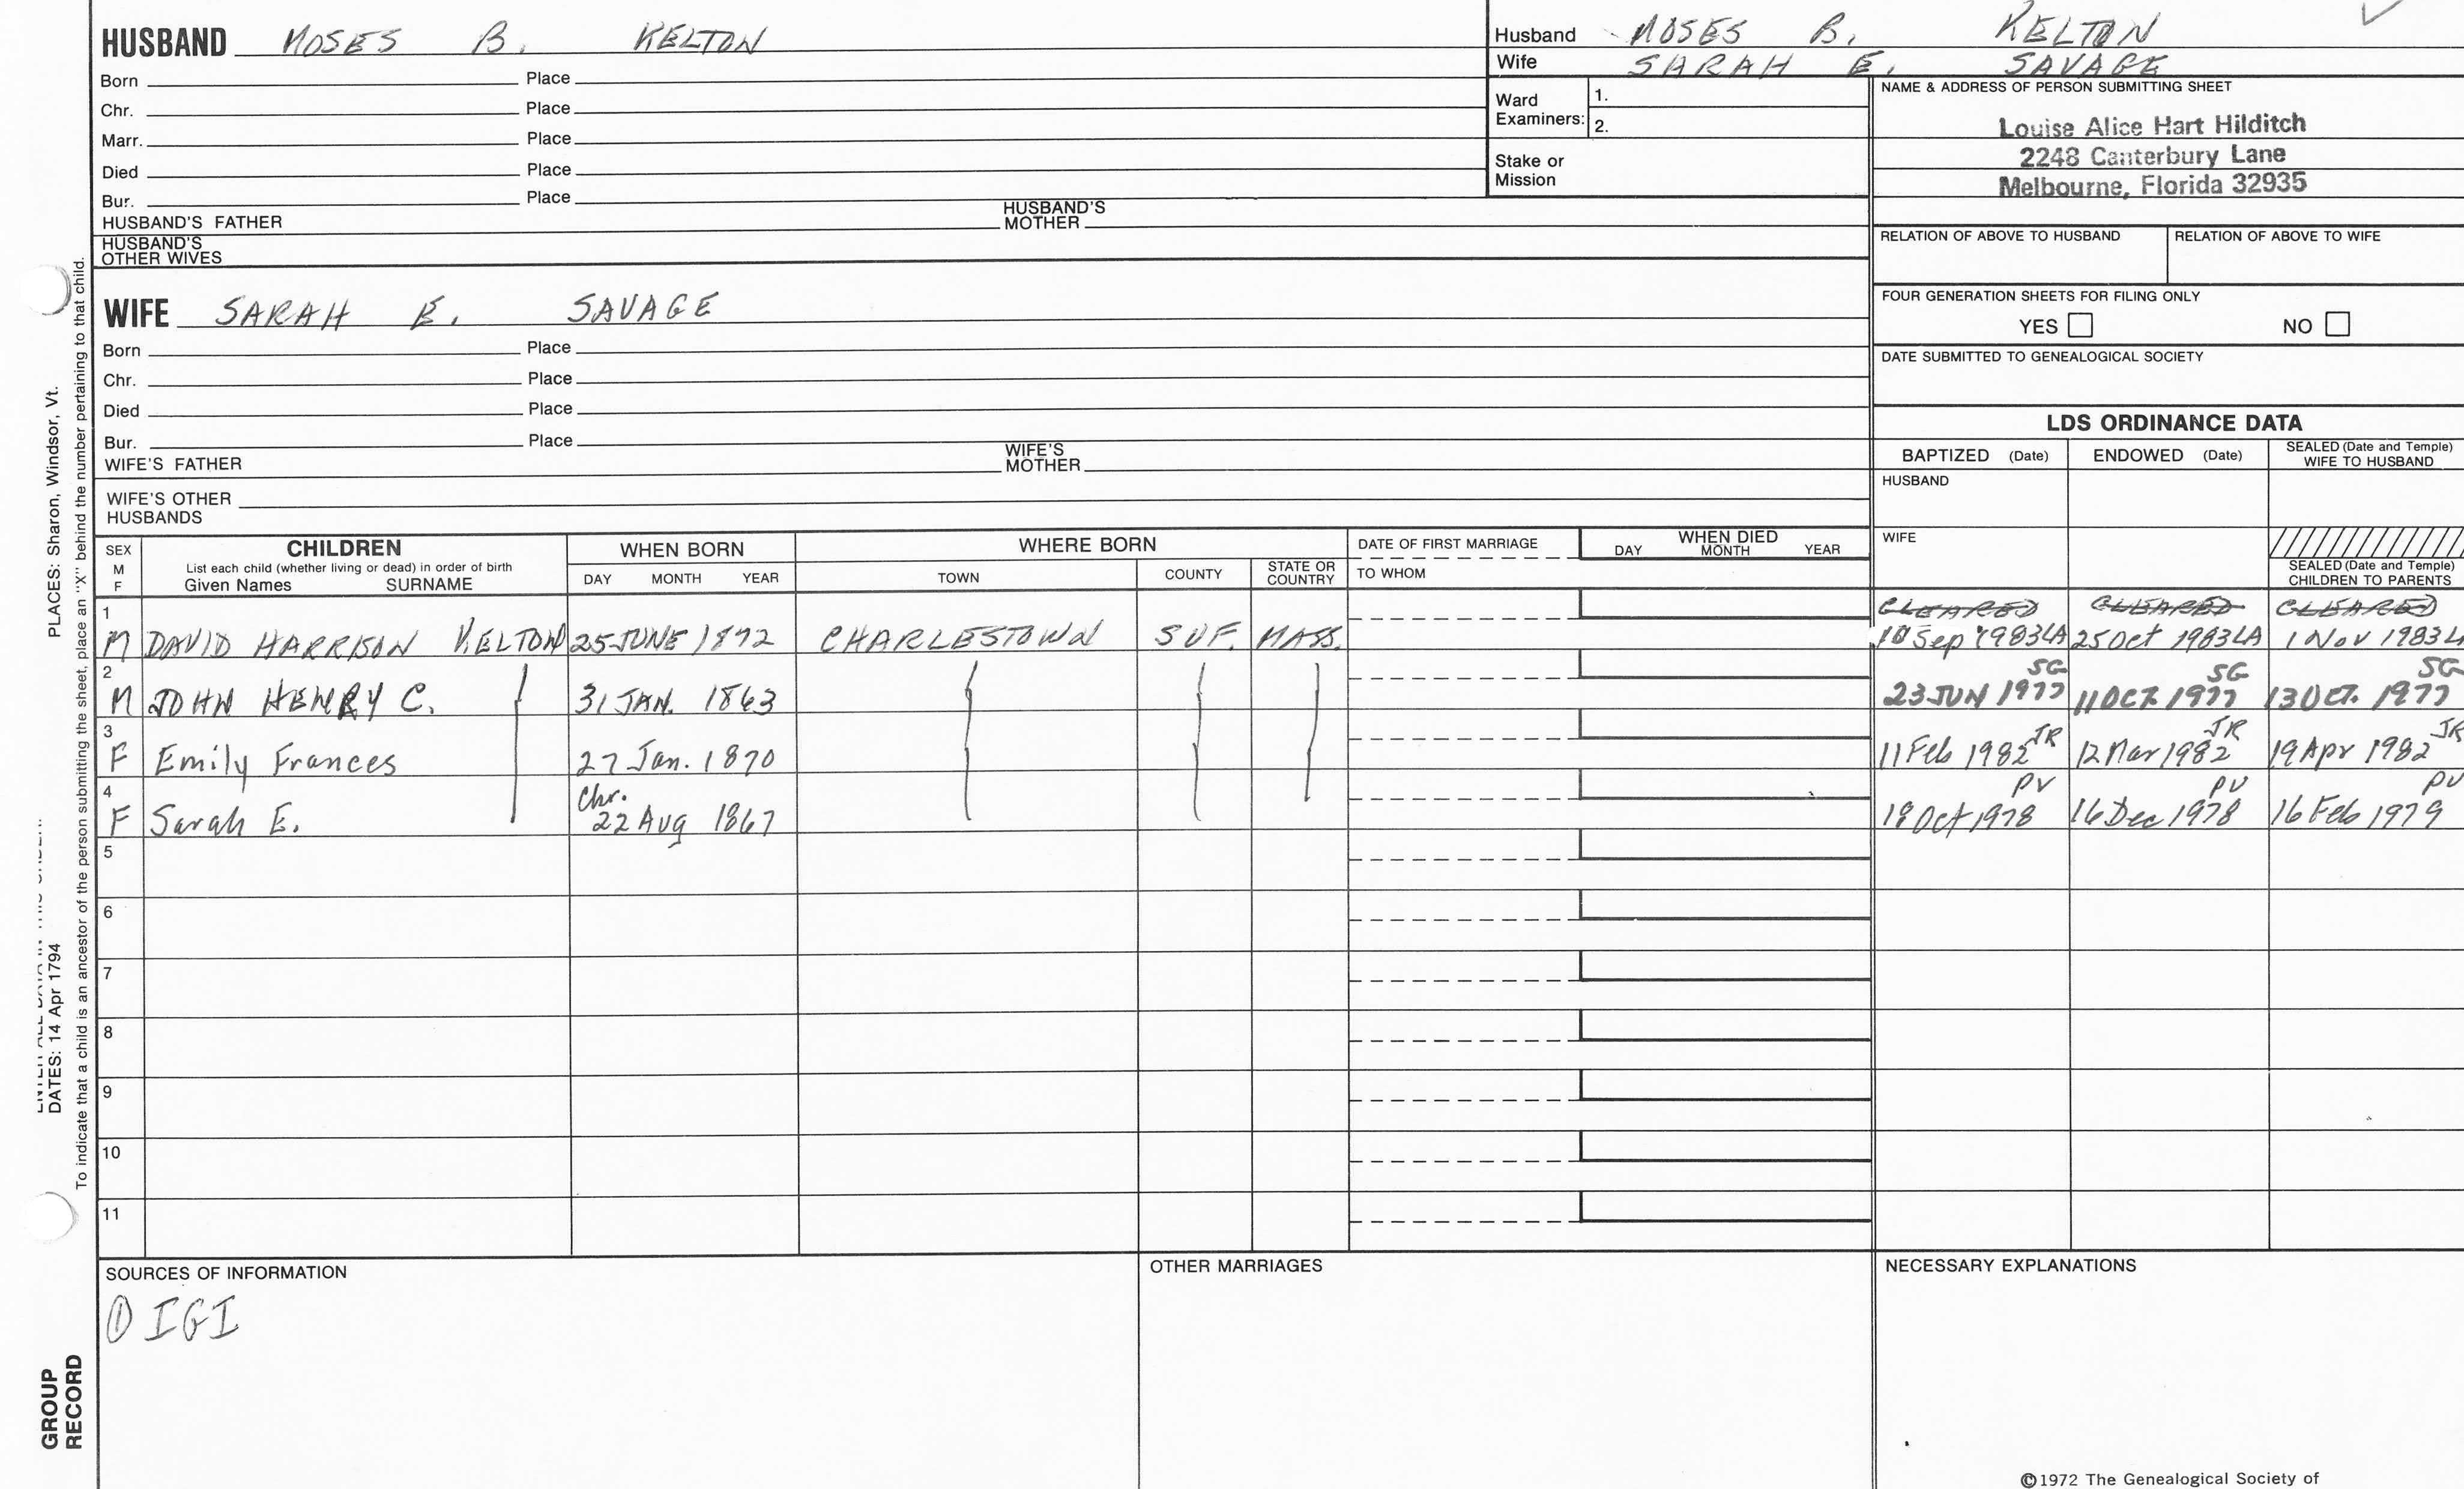 HUSBAND MOSES B. KELTON
Born Place
Chr. Place
Marr. Place
Died Place
Bur. Place
HUSBAND'S FATHER HUSBAND'S MOTHER
HUSBAND'S OTHER WIVES
Husband MOSES B. KELTON
Wife SARAH E. SAVAGE
Ward Examiners: 1.
2.
Stake or Mission
NAME & ADDRESS OF PERSON SUBMITTING SHEET
Louise Alice Hart Hilditch
2248 Canterbury Lane
Melbourne, Florida 32935
RELATION OF ABOVE TO HUSBAND RELATION OF ABOVE TO WIFE
FOUR GENERATION SHEETS FOR FILING ONLY
YES NO
DATE SUBMITTED TO GENEALOGICAL SOCIETY
WIFE SARAH E. SAVAGE
Born Place
Chr. Place
Died Place
Bur. Place
WIFE'S FATHER WIFE'S MOTHER
WIFE'S OTHER HUSBANDS
LDS ORDINANCE DATA
BAPTIZED (Date) ENDOWED (Date) SEALED (Date and Temple) WIFE TO HUSBAND
HUSBAND
WIFE
SEALED (Date and Temple) CHILDREN TO PARENTS
SEX M F CHILDREN WHEN BORN WHERE BORN DATE OF FIRST MARRIAGE WHEN DIED
List each child (whether living or dead) in order of birth
Given Names SURNAME DAY MONTH YEAR TOWN COUNTY STATE OR COUNTRY TO WHOM DAY MONTH YEAR
1 CLEARED CLEARED CLEARED
M DAVID HARRISON KELTON 25 JUNE 1872 CHARLESTOWN SUF. MASS. 10 Sep 1983 LA 25 Oct 1983 LA 1 Nov 1983 L
2 SG SG SG
M JOHN HENRY C. 31 JAN. 1863 23 JUN 1977 11 OCT. 1977 13 OCT. 1977
3 JR JR JR
F Emily Frances 27 Jan. 1870 11 Feb 1982 12 Mar 1982 19 Apr 1982
4 Chr. PV PV PV
F Sarah E. 22 Aug 1867 18 Oct 1978 16 Dec 1978 16 Feb 1979
5
6
7
8
9
10
11
SOURCES OF INFORMATION OTHER MARRIAGES NECESSARY EXPLANATIONS
① IGI
©1972 The Genealogical Society of
PLACES: Sharon, Windsor, Vt.
DATES: 14 Apr 1794
To indicate that a child is an ancestor of the person submitting the sheet, place an "X" behind the number pertaining to that child.
GROUP RECORD